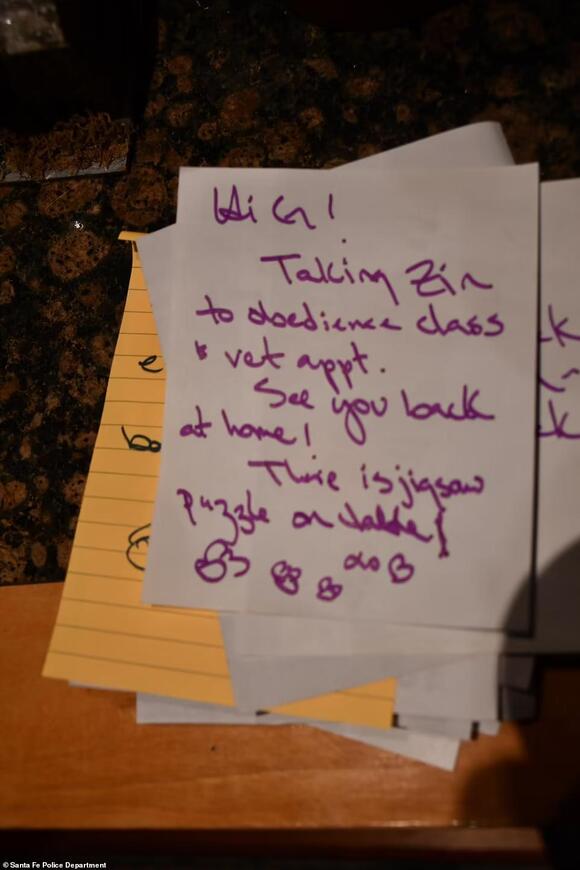 Hi G!
Taking Zin
to obedience class
& vet appt.
See you back
at home!
There is jigsaw
Puzzle on table!
© Santa Fe Police Department